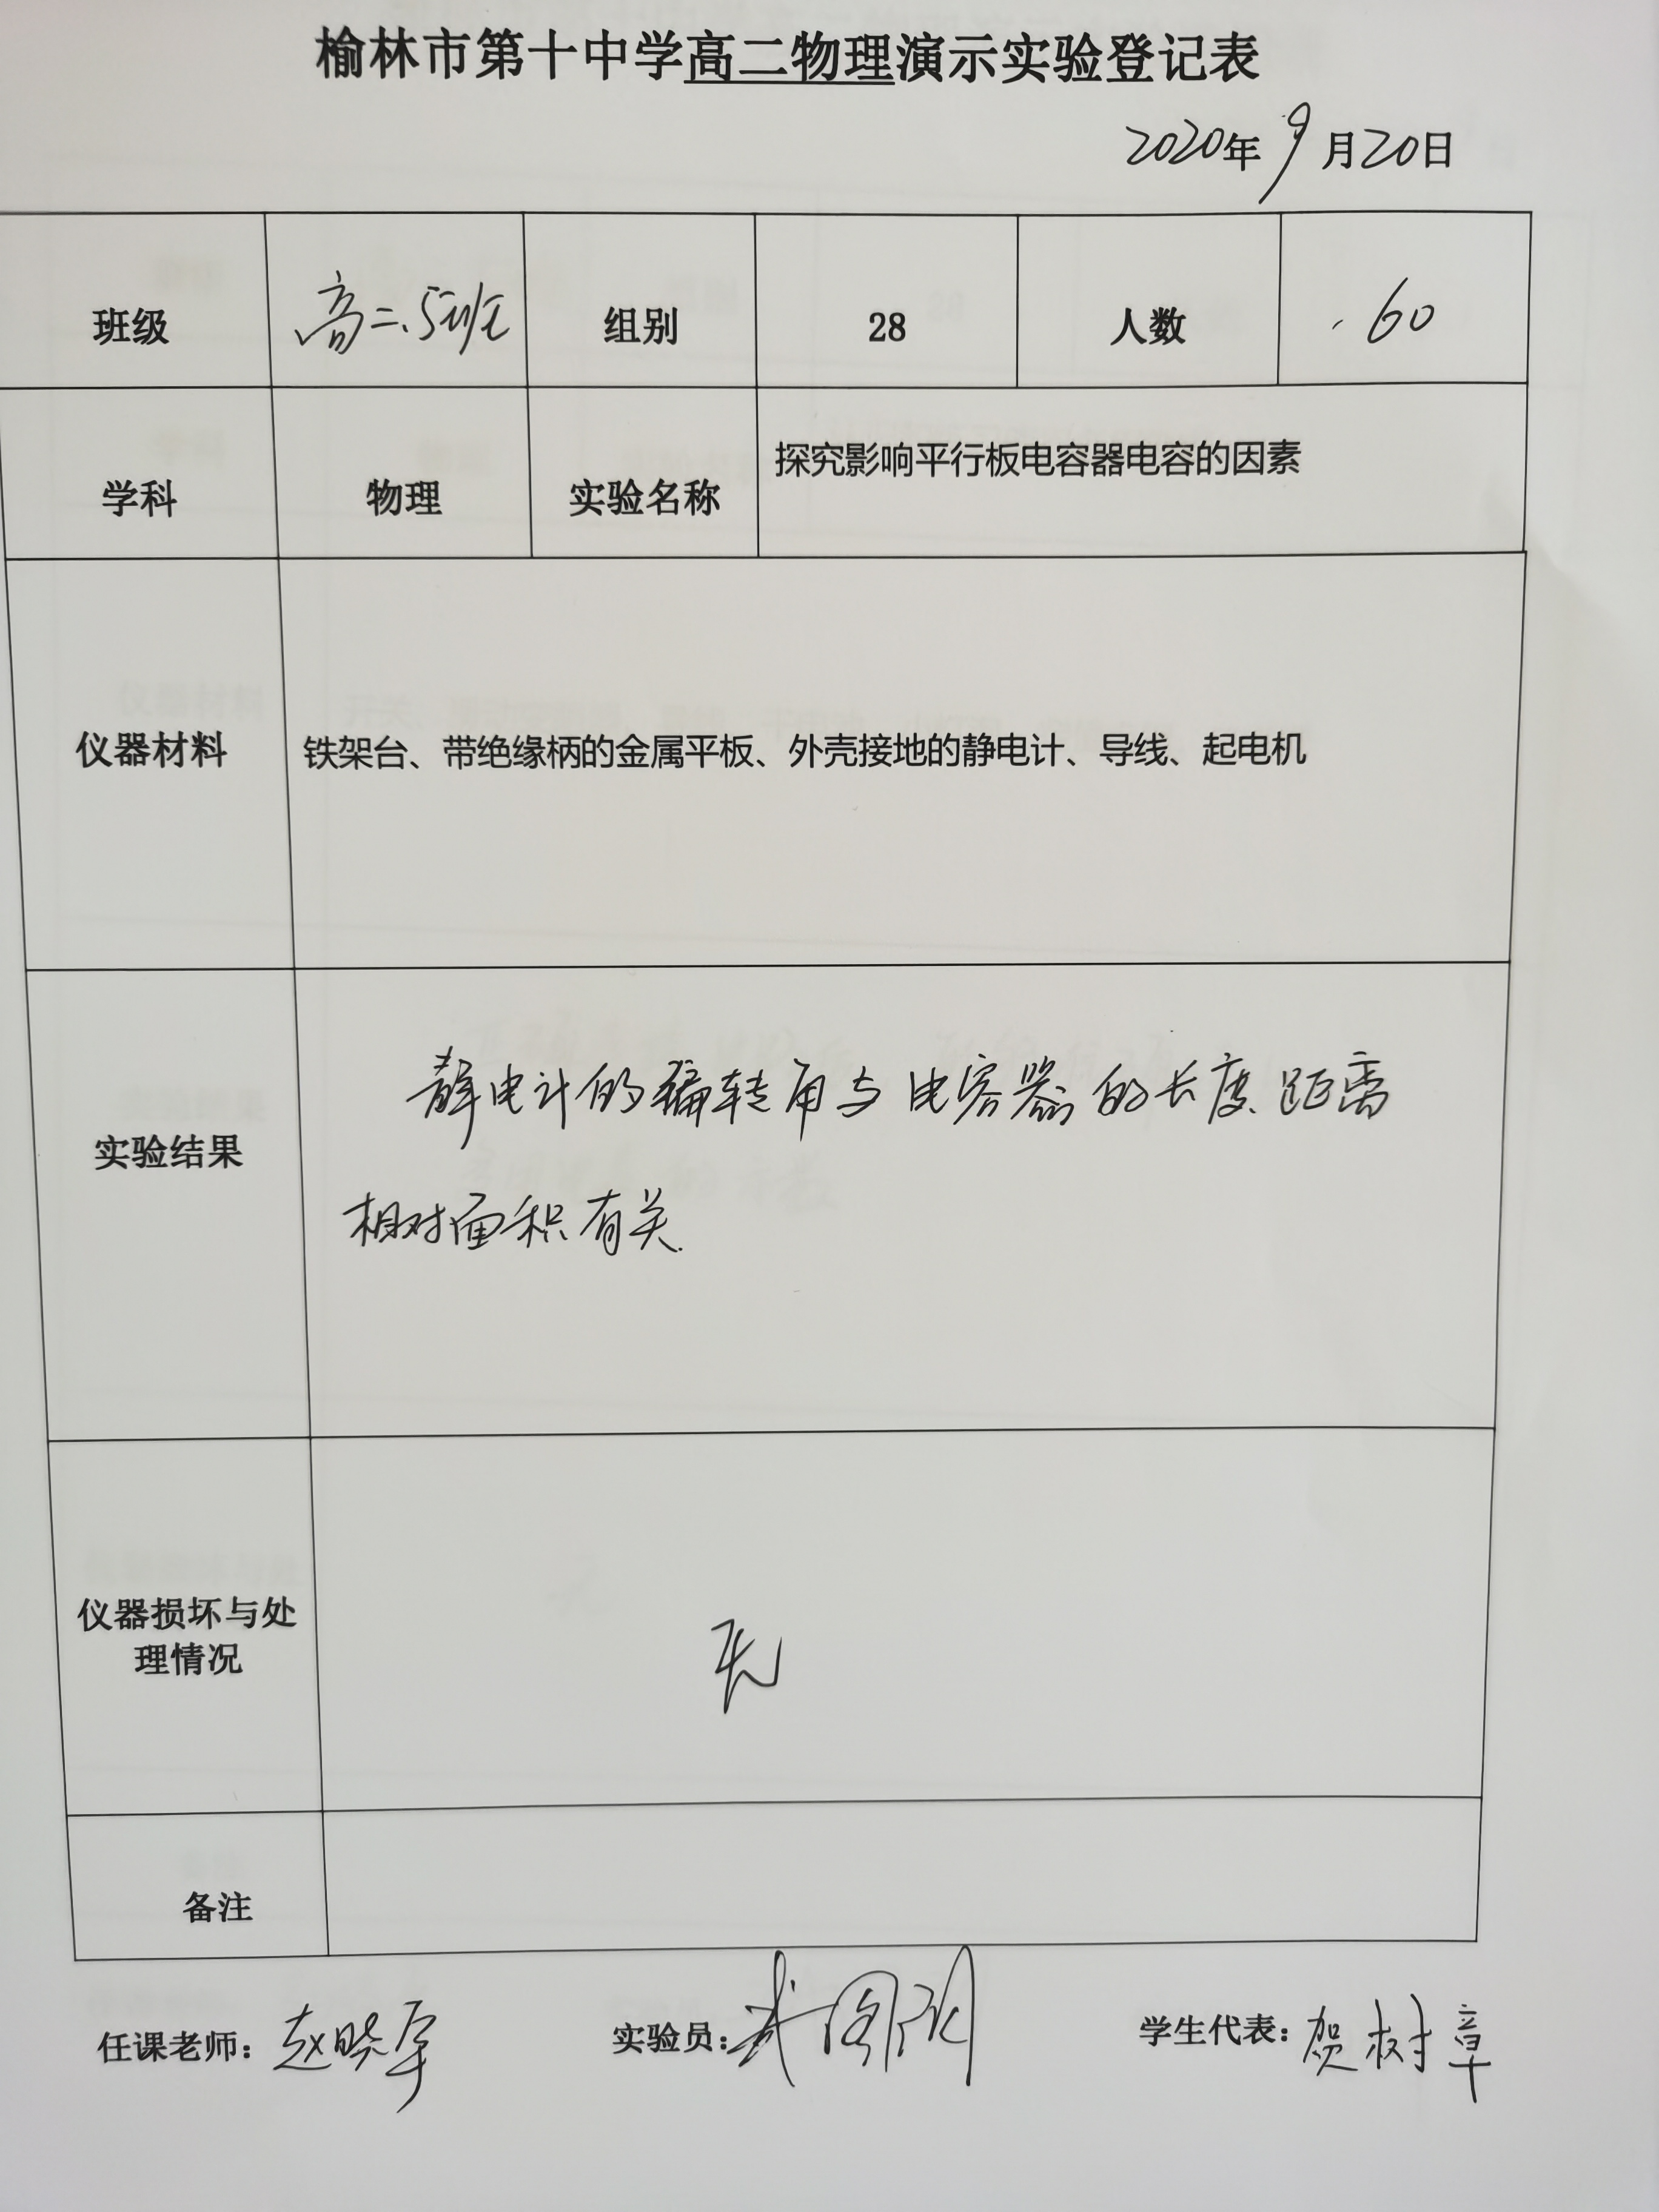 榆林市第十中学高二物理演示实验登记表
2020年9月20日
班级 高二.5班 组别 28 人数 60
学科 物理 实验名称 探究影响平行板电容器电容的因素
仪器材料 铁架台、带绝缘柄的金属平板、外壳接地的静电计、导线、起电机
实验结果
静电计的偏转角与电容器的长度、距离
相对面积有关.
仪器损坏与处
理情况
无
备注
任课老师：赵晓军 实验员： 学生代表：贺树章